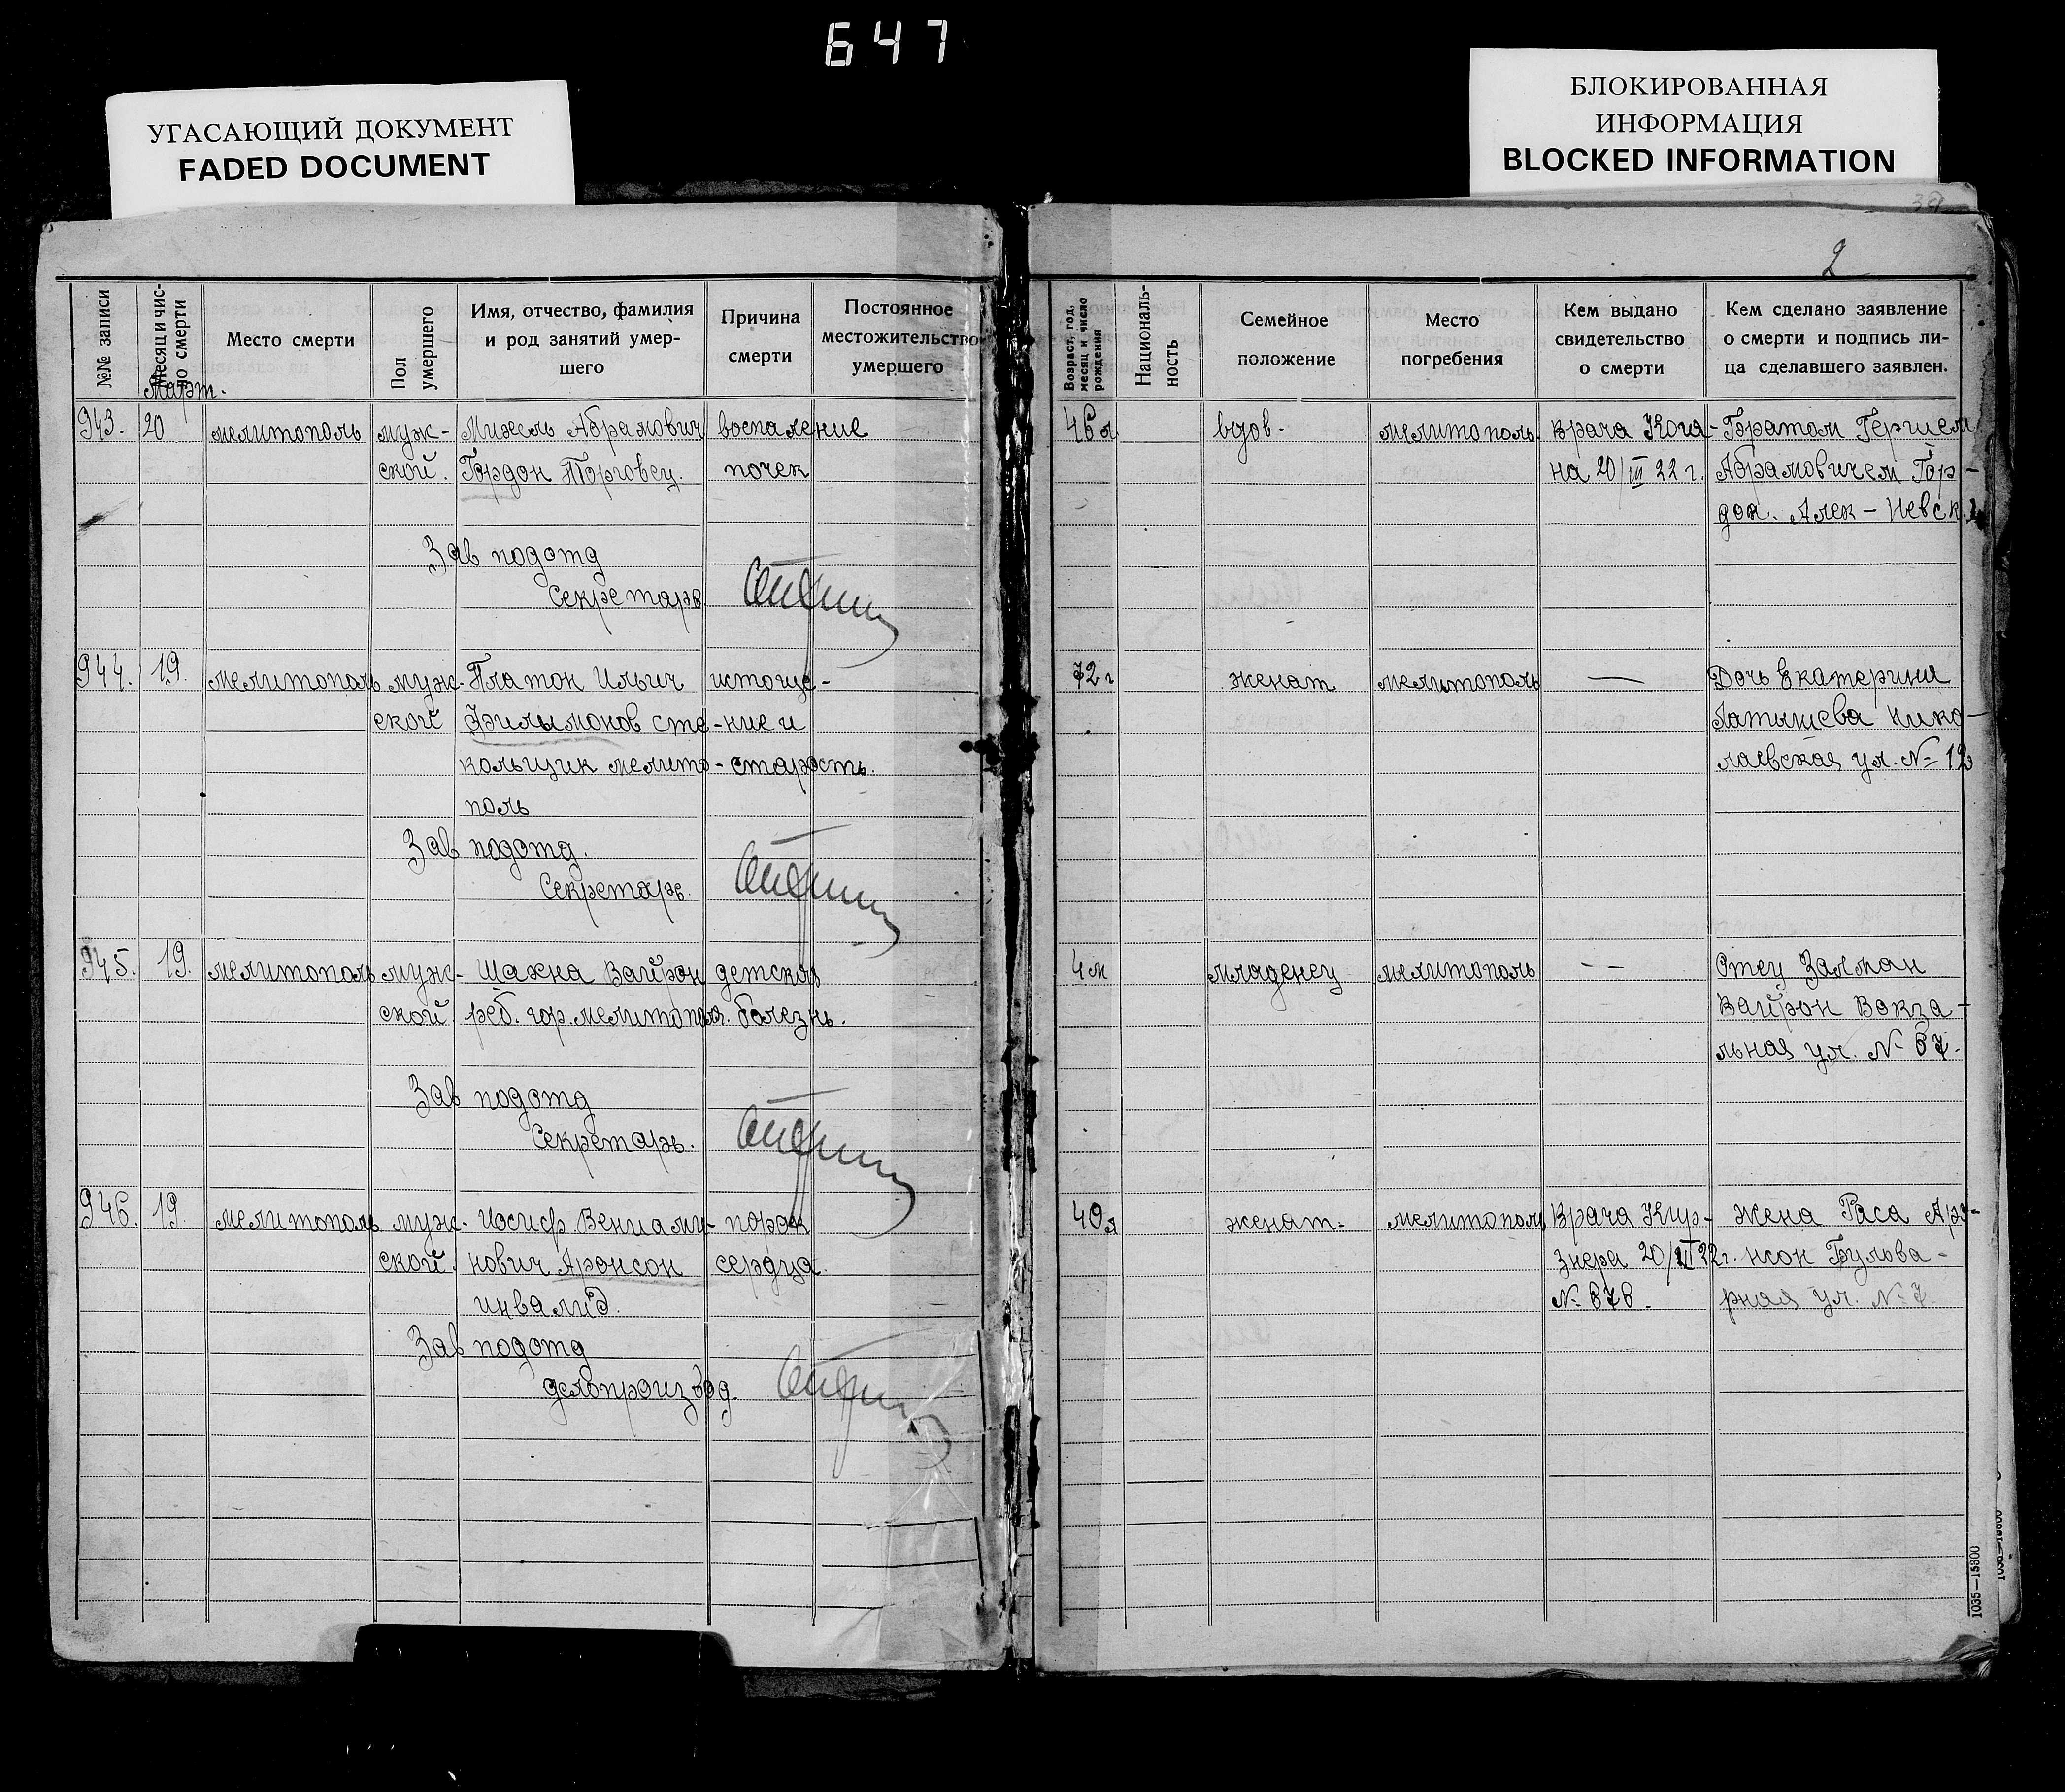 647
УГАСАЮЩИЙ ДОКУМЕНТ
FADED DOCUMENT
БЛОКИРОВАННАЯ
ИНФОРМАЦИЯ
BLOCKED INFORMATION
39
2
№№ записи
Месяц и чис-
ло смерти
Март.
Место смерти
Пол
умершего
Имя, отчество, фамилия
и род занятий умер-
шего
Причина
смерти
Постоянное
местожительство
умершего
Возраст, год,
месяц и число
рождения
Националь-
ность
Семейное
положение
Место
погребения
Кем выдано
свидетельство
о смерти
Кем сделано заявление
о смерти и подпись ли-
ца сделавшего заявлен.
943. 20 мелитополь муж- Михель Абрамович воспаление
ской. Гордон Торговец. почек
46 л вдов. мелитополь. врача Кога- Братом Гершем
на 20/III 22 г. Абрамовичем Гор-
дон. Алек-Невск.
Зав подотд
Секретарь
944. 19. мелитополь муж- Платон Ильич истоще-
ской Филымонов сте- ние и
кольщик мелито- старость.
поль
72 г женат мелитополь — Дочь Екатерина
Латышева Нико-
лаевская ул. № 12
Зав подотд.
Секретарь.
945. 19. мелитополь муж- Шахна Вайрон детская
ской реб. гор. мелитополя. болезнь.
4 м младенец мелитополь - - Отец Залман
Вайрон Вокза-
льная ул. № 67.
Зав подотд
Секретарь.
946. 19. мелитополь муж- Иосиф Вениами- порок
ской. нович Аронсон сердца.
инвалид.
40 л женат. мелитополь Врача Кир- жена Раса Аро-
знера 20/III 22 г. нсон Бульва-
№ 878. рная ул. № 7
Зав подотд
делопроизвод.
1035—15800